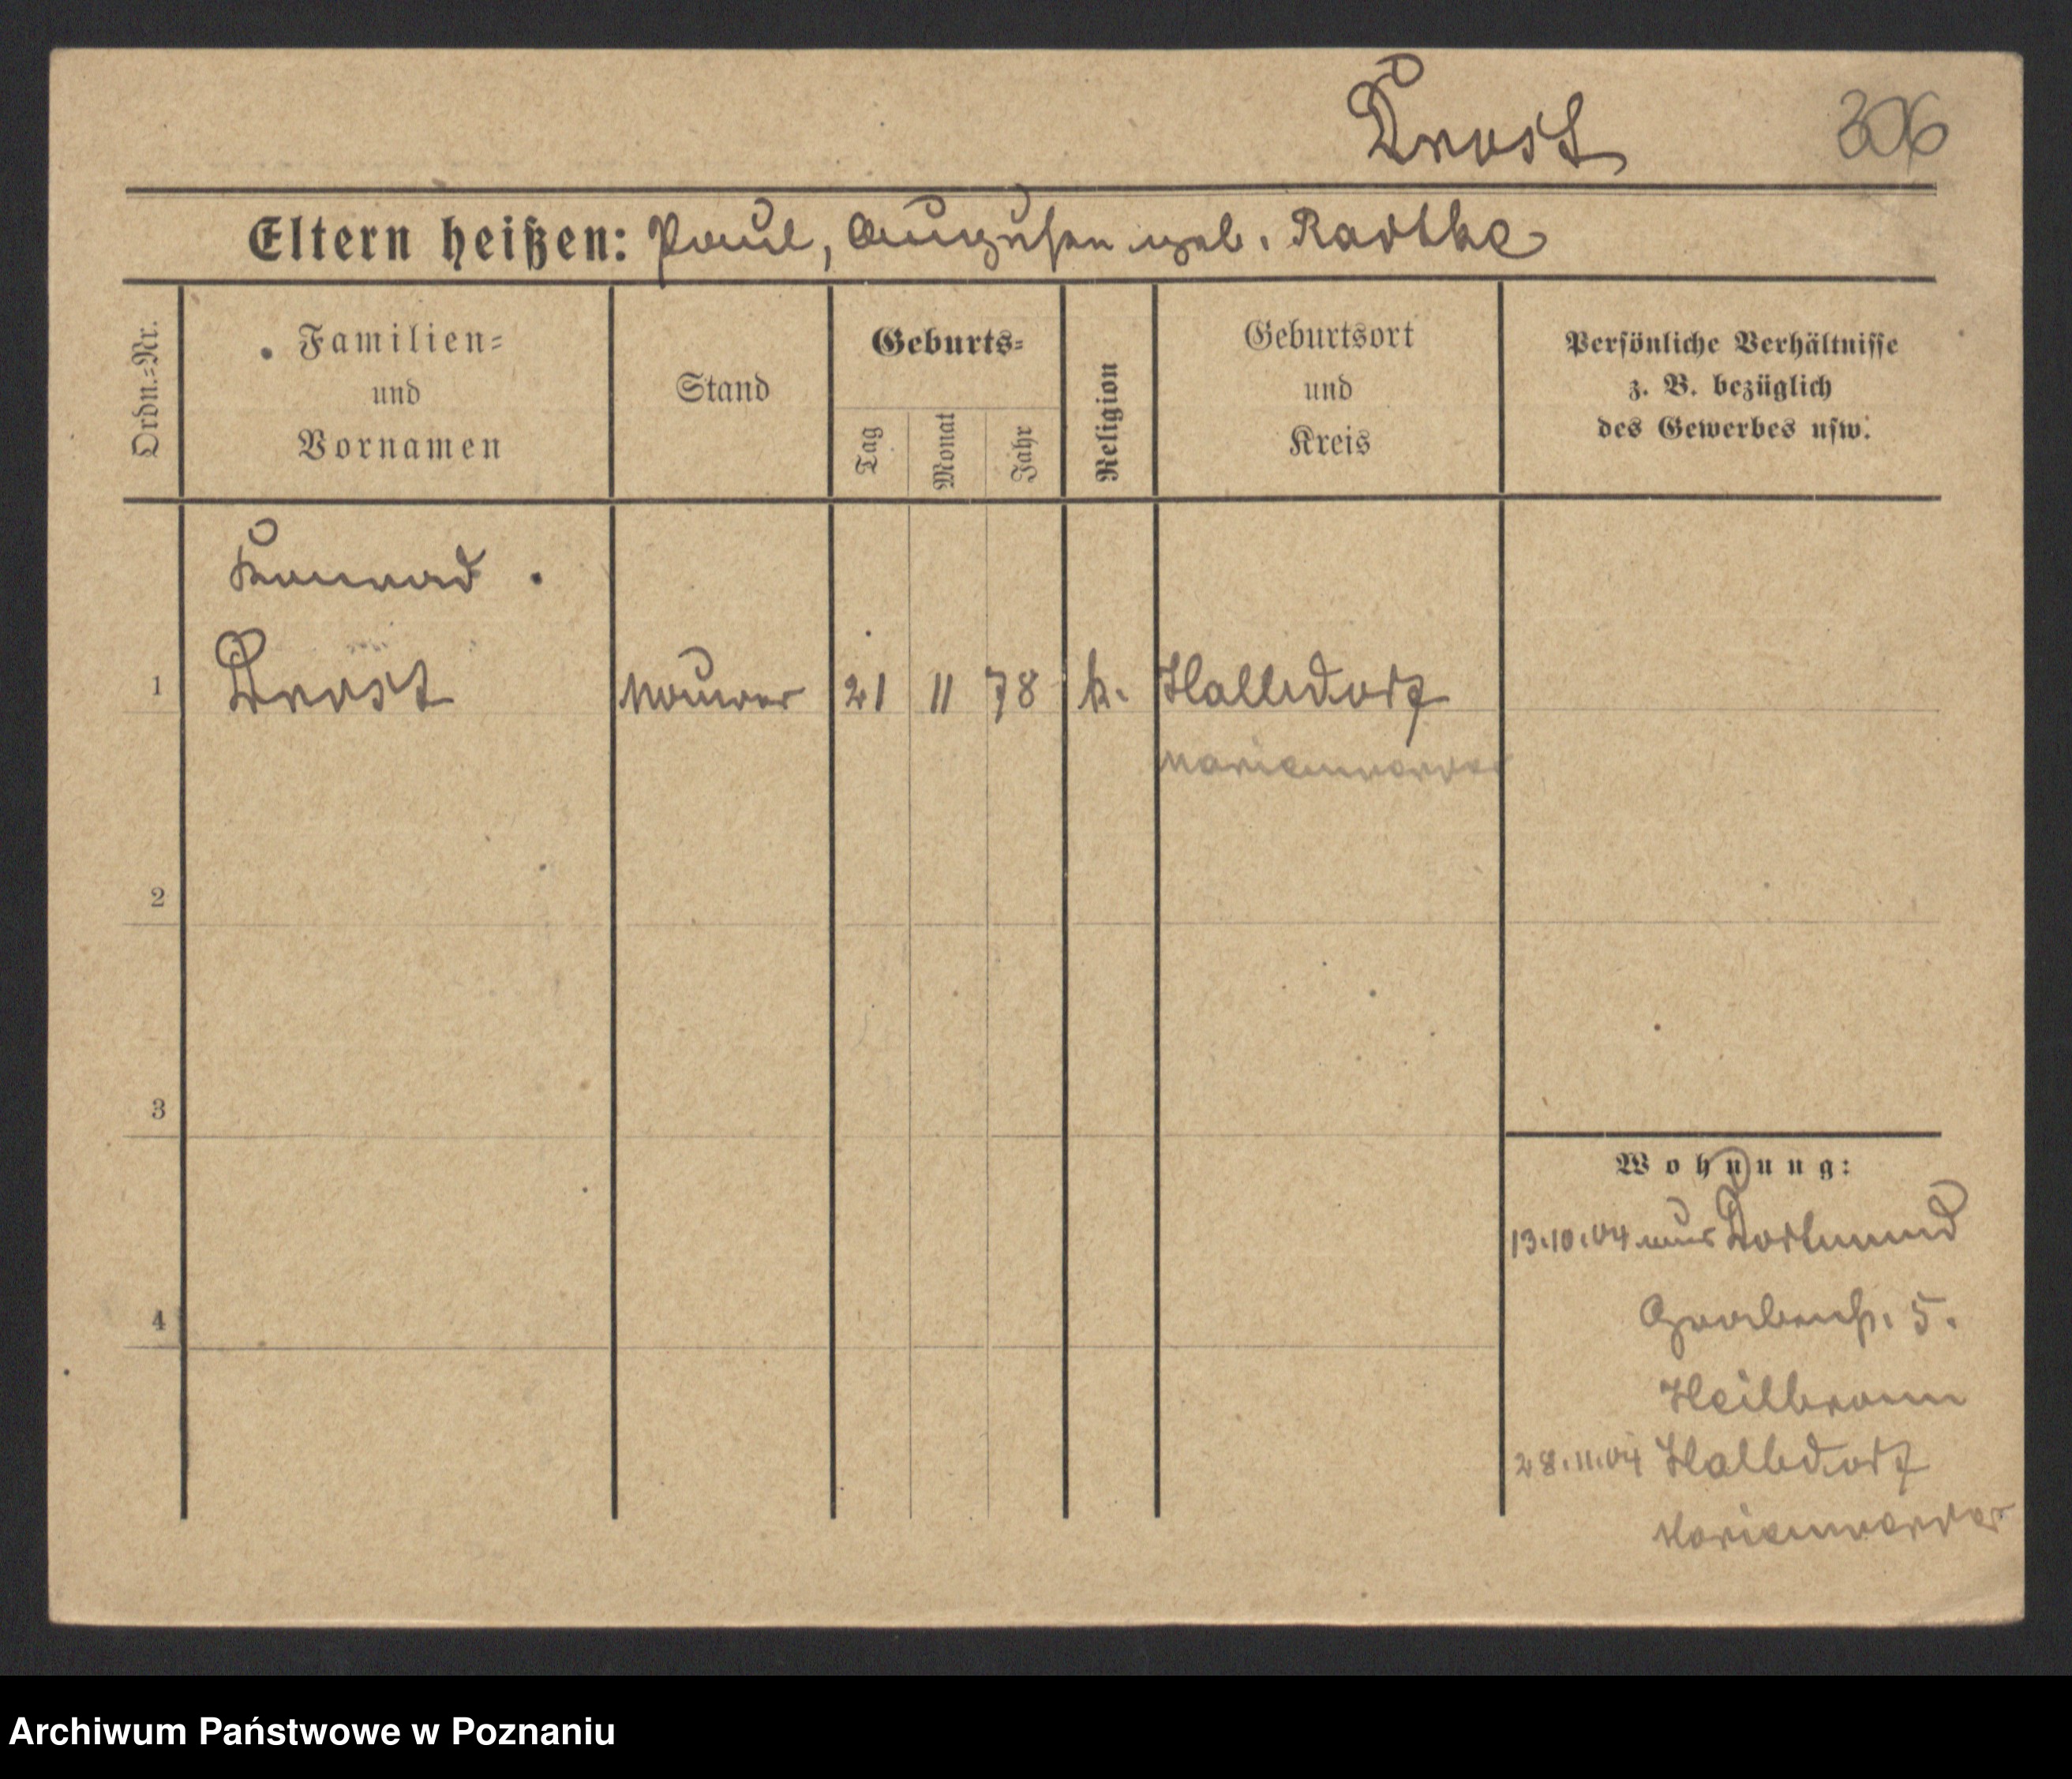 Drost 306
Eltern heißen: Paul, Auguste geb. Radtke
Ordn.=Nr.
Familien=
und
Vornamen
Stand
Geburts=
Tag
Monat
Jahr
Religion
Geburtsort
und
Kreis
Persönliche Verhältnisse
z. B. bezüglich
des Gewerbes usw.
Konrad
1 Drost Maurer 21 11 78 k. Halbdorf
Marienwerder
2
3
4
Wohnung:
13.10.04 aus Dortmund
5.
Heilbronn
28.11.04 Halbdorf
Marienwerder
Archiwum Państwowe w Poznaniu